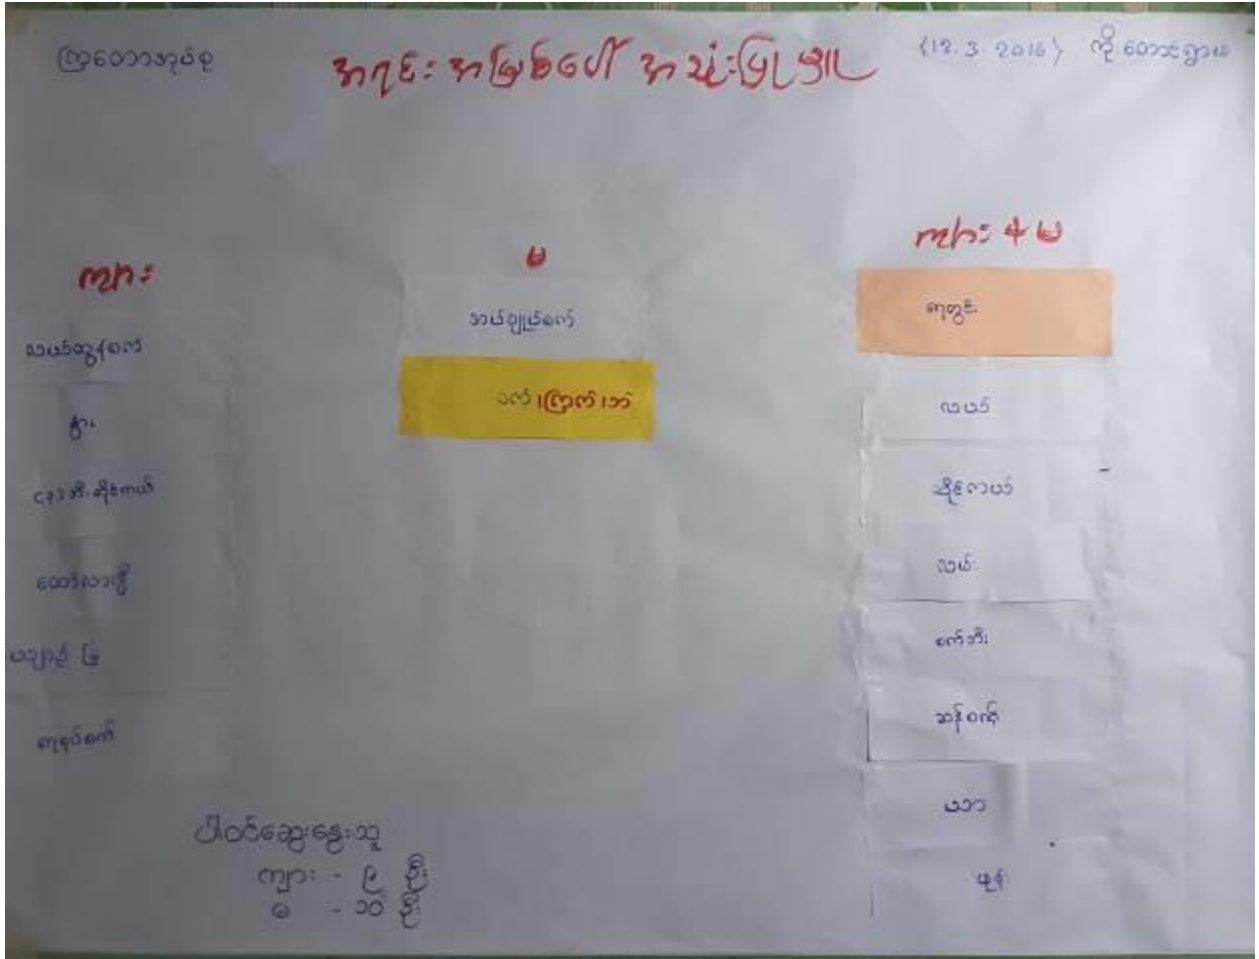 ကြာတောအုပ်စု
အရင်းအမြစ်ပေါ် အသုံးပြုမှု
(12. 3 2016) ကို တောင်ရွာမ
ကျား
မ
ကျား + မ
လယ်ထွန်စက်
နွား
ဆိုင်ကယ်
ထော်လာဂျီ
ပညာဉ် မြို့
ရေစုပ်စက်
အပ်ချုပ်စက်
ဝက်၊ ကြက်၊ ဘဲ
ရေတွင်း
လယ်
ဆိုင်ကယ်
လမ်း
စက်ဘီး
ဆန်စက်
ယာ
ဖုန်း
ပါဝင်ဆွေးနွေးသူ
ကျား - ၉ ဦး
မ - ၁၀ ဦး